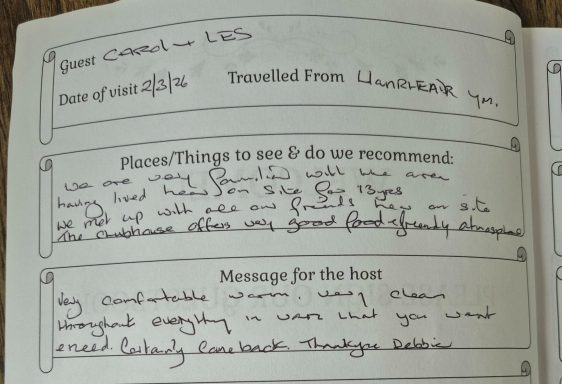 Guest CAROL + LES
Date of visit 2/3/26 Travelled From LLANRHEADR YM.
Places/Things to see & do we recommend:
We are very familiar with the area
having lived here on site for 13 yrs
we met up with all our friends here on site
The clubhouse offers very good food & friendly atmosphere
Message for the host
Very comfortable warm. very clean
throughout everything in that you want
& need. Certainly come back. Thankyou Debbie